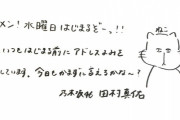 メン!水曜日はじまるぞーっ!!
ねこ
いつもはじまる前にアドレスよみを
しています。今日もかまずに言えるかな〜?
乃木坂46 田村真佑